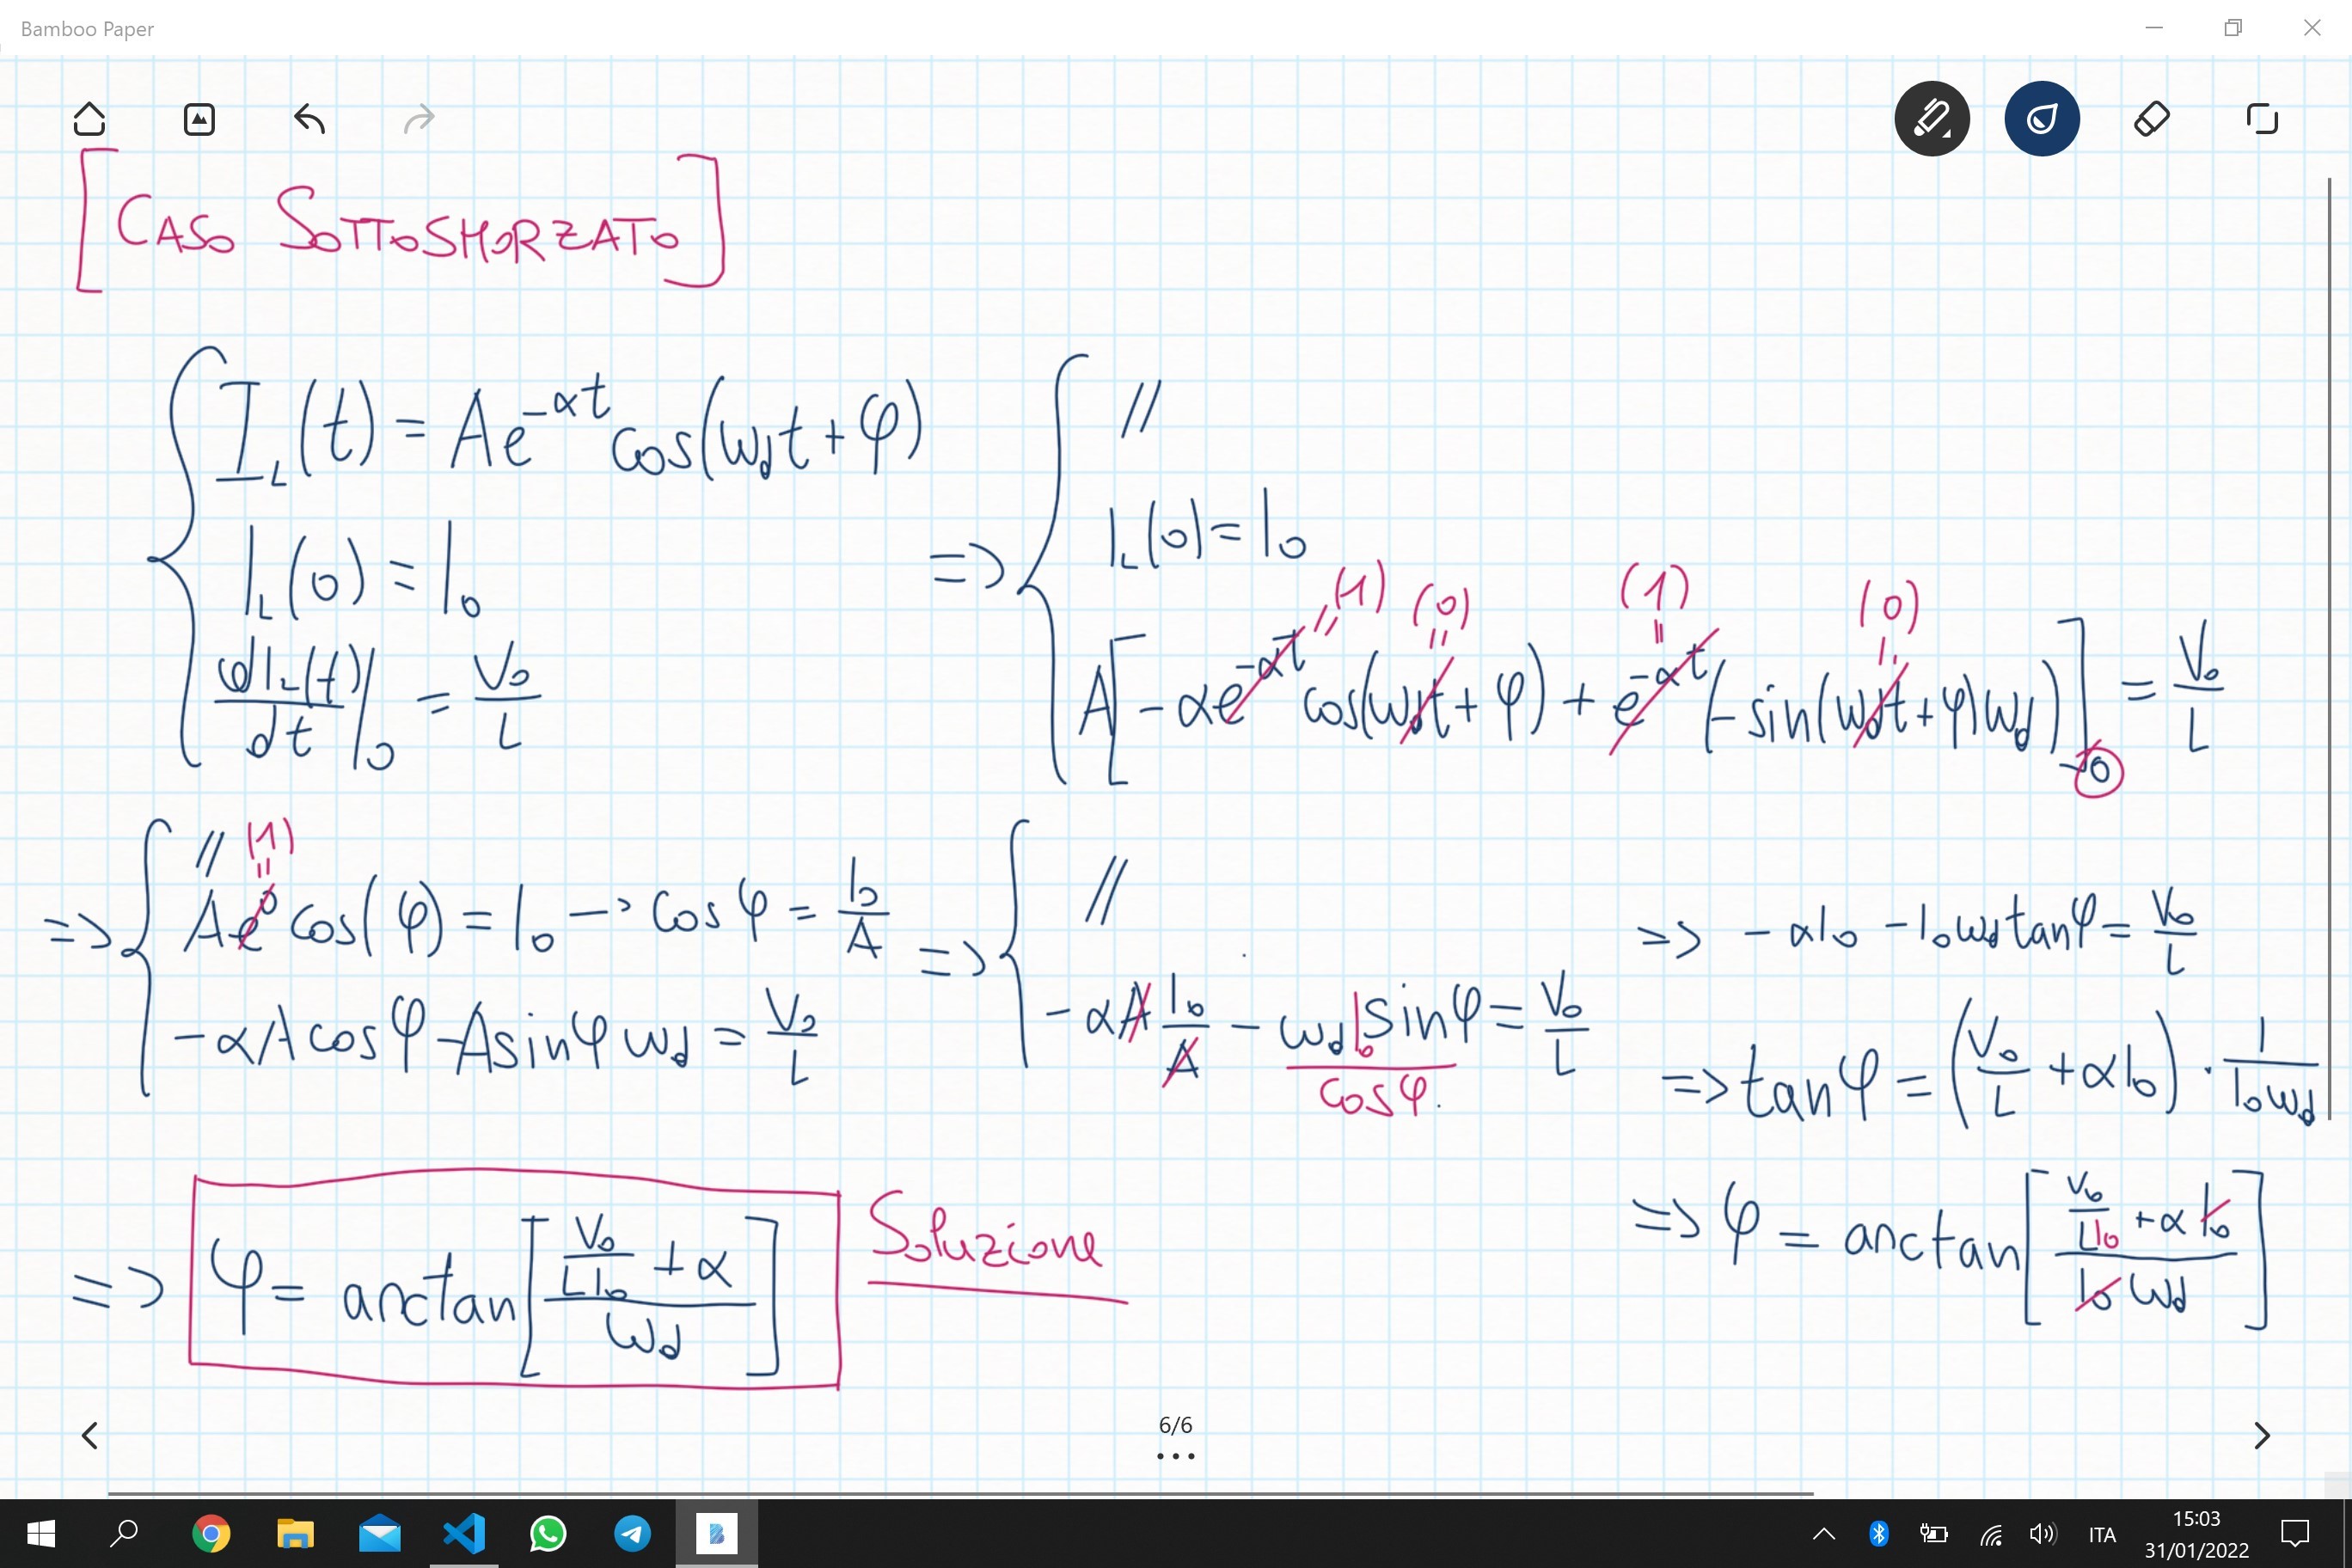 Bamboo Paper
[CASO SOTTOSMORZATO]
{ I_L(t) = Ae^{-αt} cos(ω_d t + φ)
I_L(0) = I_0
dI_L(t)/dt |_0 = V_0/L
=> { //
I_L(0) = I_0
(1) (0) (1) (0)
A[-αe^{-αt} cos(ω_d t + φ) + e^{-αt}(-sin(ω_d t + φ)ω_d)]_{→0} = V_0/L
=> { // (1)
Ae^0 cos(φ) = I_0 -> cosφ = I_0/A
-αA cosφ - A sinφ ω_d = V_0/L
=> { //
-αA I_0/A - ω_d I_0 sinφ/cosφ = V_0/L
=> -αI_0 - I_0 ω_d tanφ = V_0/L
=> tanφ = (V_0/L + αI_0) · 1/(I_0 ω_d)
=> φ = arctan[(V_0/(L I_0) + α I_0)/(I_0 ω_d)]
=> φ = arctan[(V_0/(L I_0) + α)/ω_d] Soluzione
6/6
ITA
15:03
31/01/2022